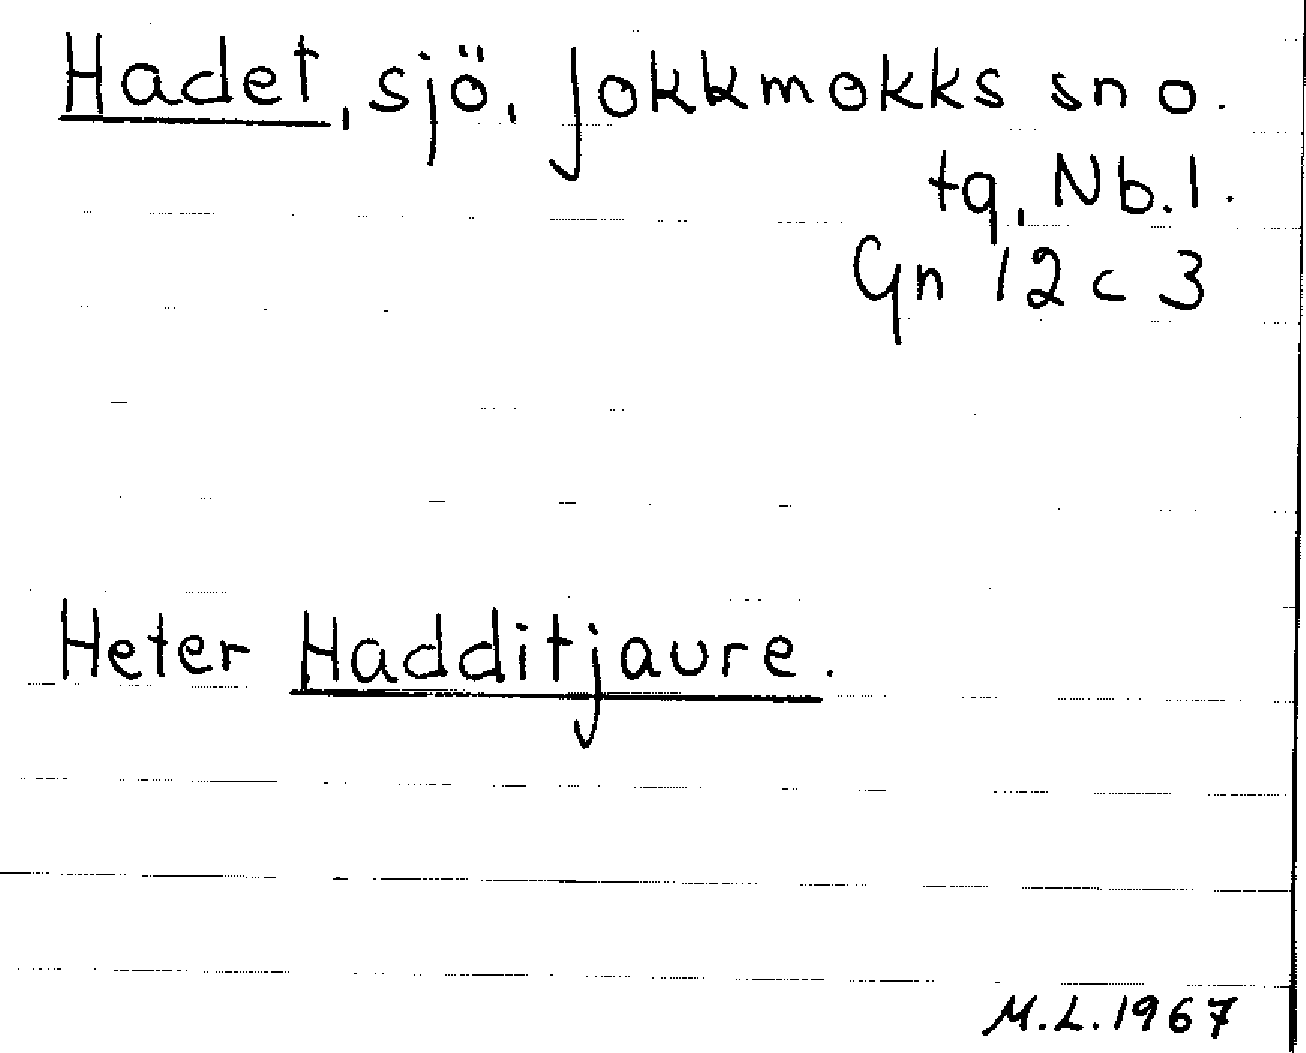 Hadet, sjö, Jokkmokks sn o.
tg, Nb.l.
Gn 12 c 3
Heter Hadditjaure.
M.L. 1967